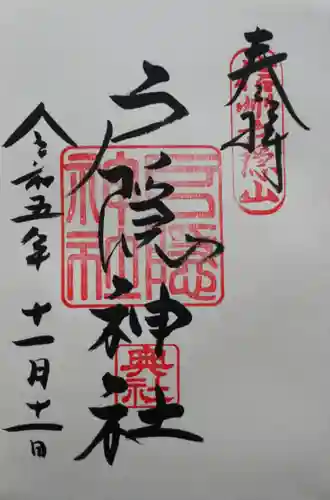 奉拝
信州戸隠山
戸隠神社
戸隠神社
奥社
令和五年十一月十一日